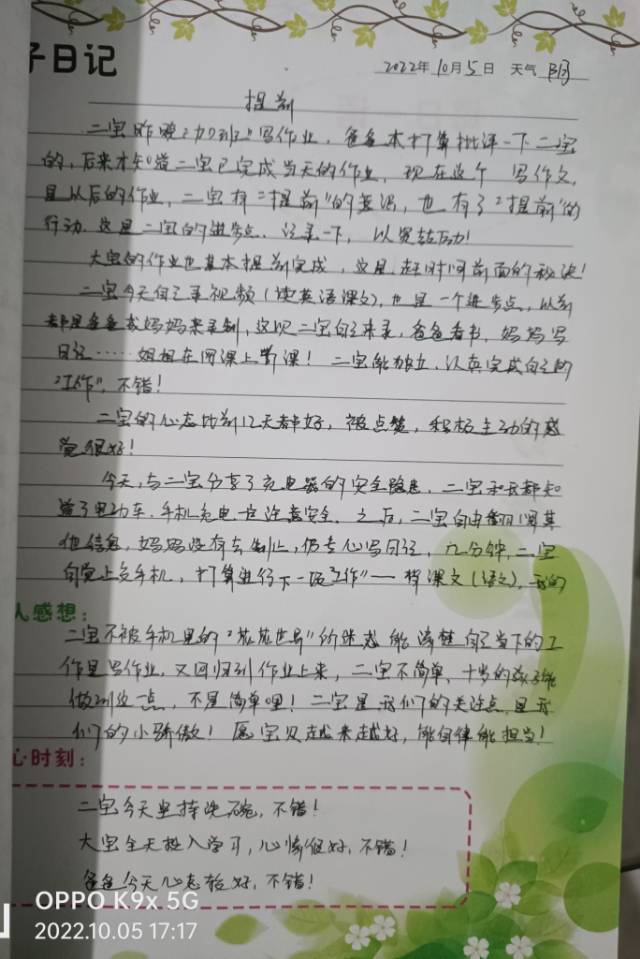 子日记
2022年10月5日 天气 阴
提前
二宝昨晚"加班"写作业，爸爸本打算批评一下二宝
的，后来才知道二宝已完成当天的作业，现在这个 写作文，
是以后的作业，二宝有"提前"的意识，也有了"提前"的
行动，这是二宝的进步点，记录一下，以资鼓励！
大宝的作业也基本提前完成，这是赶时间前面的秘诀！
二宝今天自己录视频（读英语课文），也是一个进步点，以前
都是爸爸或妈妈来录制，这次二宝自己来录，爸爸看书，妈妈写
日记……姐姐在网课上听课！二宝能独立，认真完成自己的
"工作"，不错！
二宝的心态比前几天都好，被点赞，积极主动的感
觉很好！
今天，与二宝分享了充电器的安全隐患，二宝和我都知
道了电动车、手机充电应注意安全，之后，二宝自由翻阅其
他信息，妈妈没有去制止，仍专心写日记，几分钟，二宝
自觉上交手机，打算进行下一项"工作"——背课文（语文），我的
人感想：
二宝不被手机里的"花花世界"所迷惑，能清楚自己当下的工
作是写作业，又回归到作业上来，二宝不简单，十岁的孩子能
做到这一点，不是简单哩！二宝是我们的关注点，是我
们的小骄傲！愿宝贝越来越好，能自律能担当！
心时刻：
二宝今天坚持洗碗，不错！
大宝全天投入学习，心情很好，不错！
爸爸今天心态较好，不错！
OPPO K9x 5G
2022.10.05 17:17